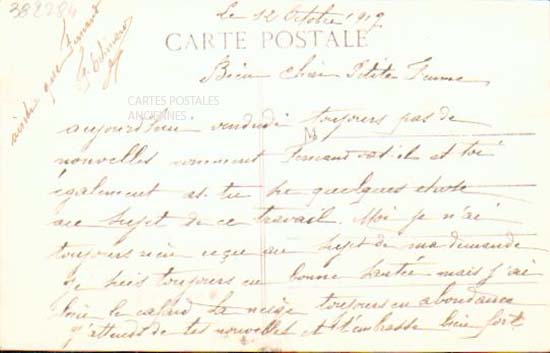 382284
Le 12 Octobre 1917
CARTE POSTALE
Bien cher Petite Femme
CARTES POSTALES
ANCIENNES
aujourdhui vendredi toujours pas de
nouvelles comment Fernand vat-il et toi
également as-tu su quelques chose
au sujet de ce travail. Moi je n'ai
toujours rien reçu au sujet de ma demande
Je suis toujours en bonne santée mais j'ai
bien le cafard La neige toujours en abondance
j'attends de tes nouvelles et t'embrasse bien fort
ainsi que Fernand